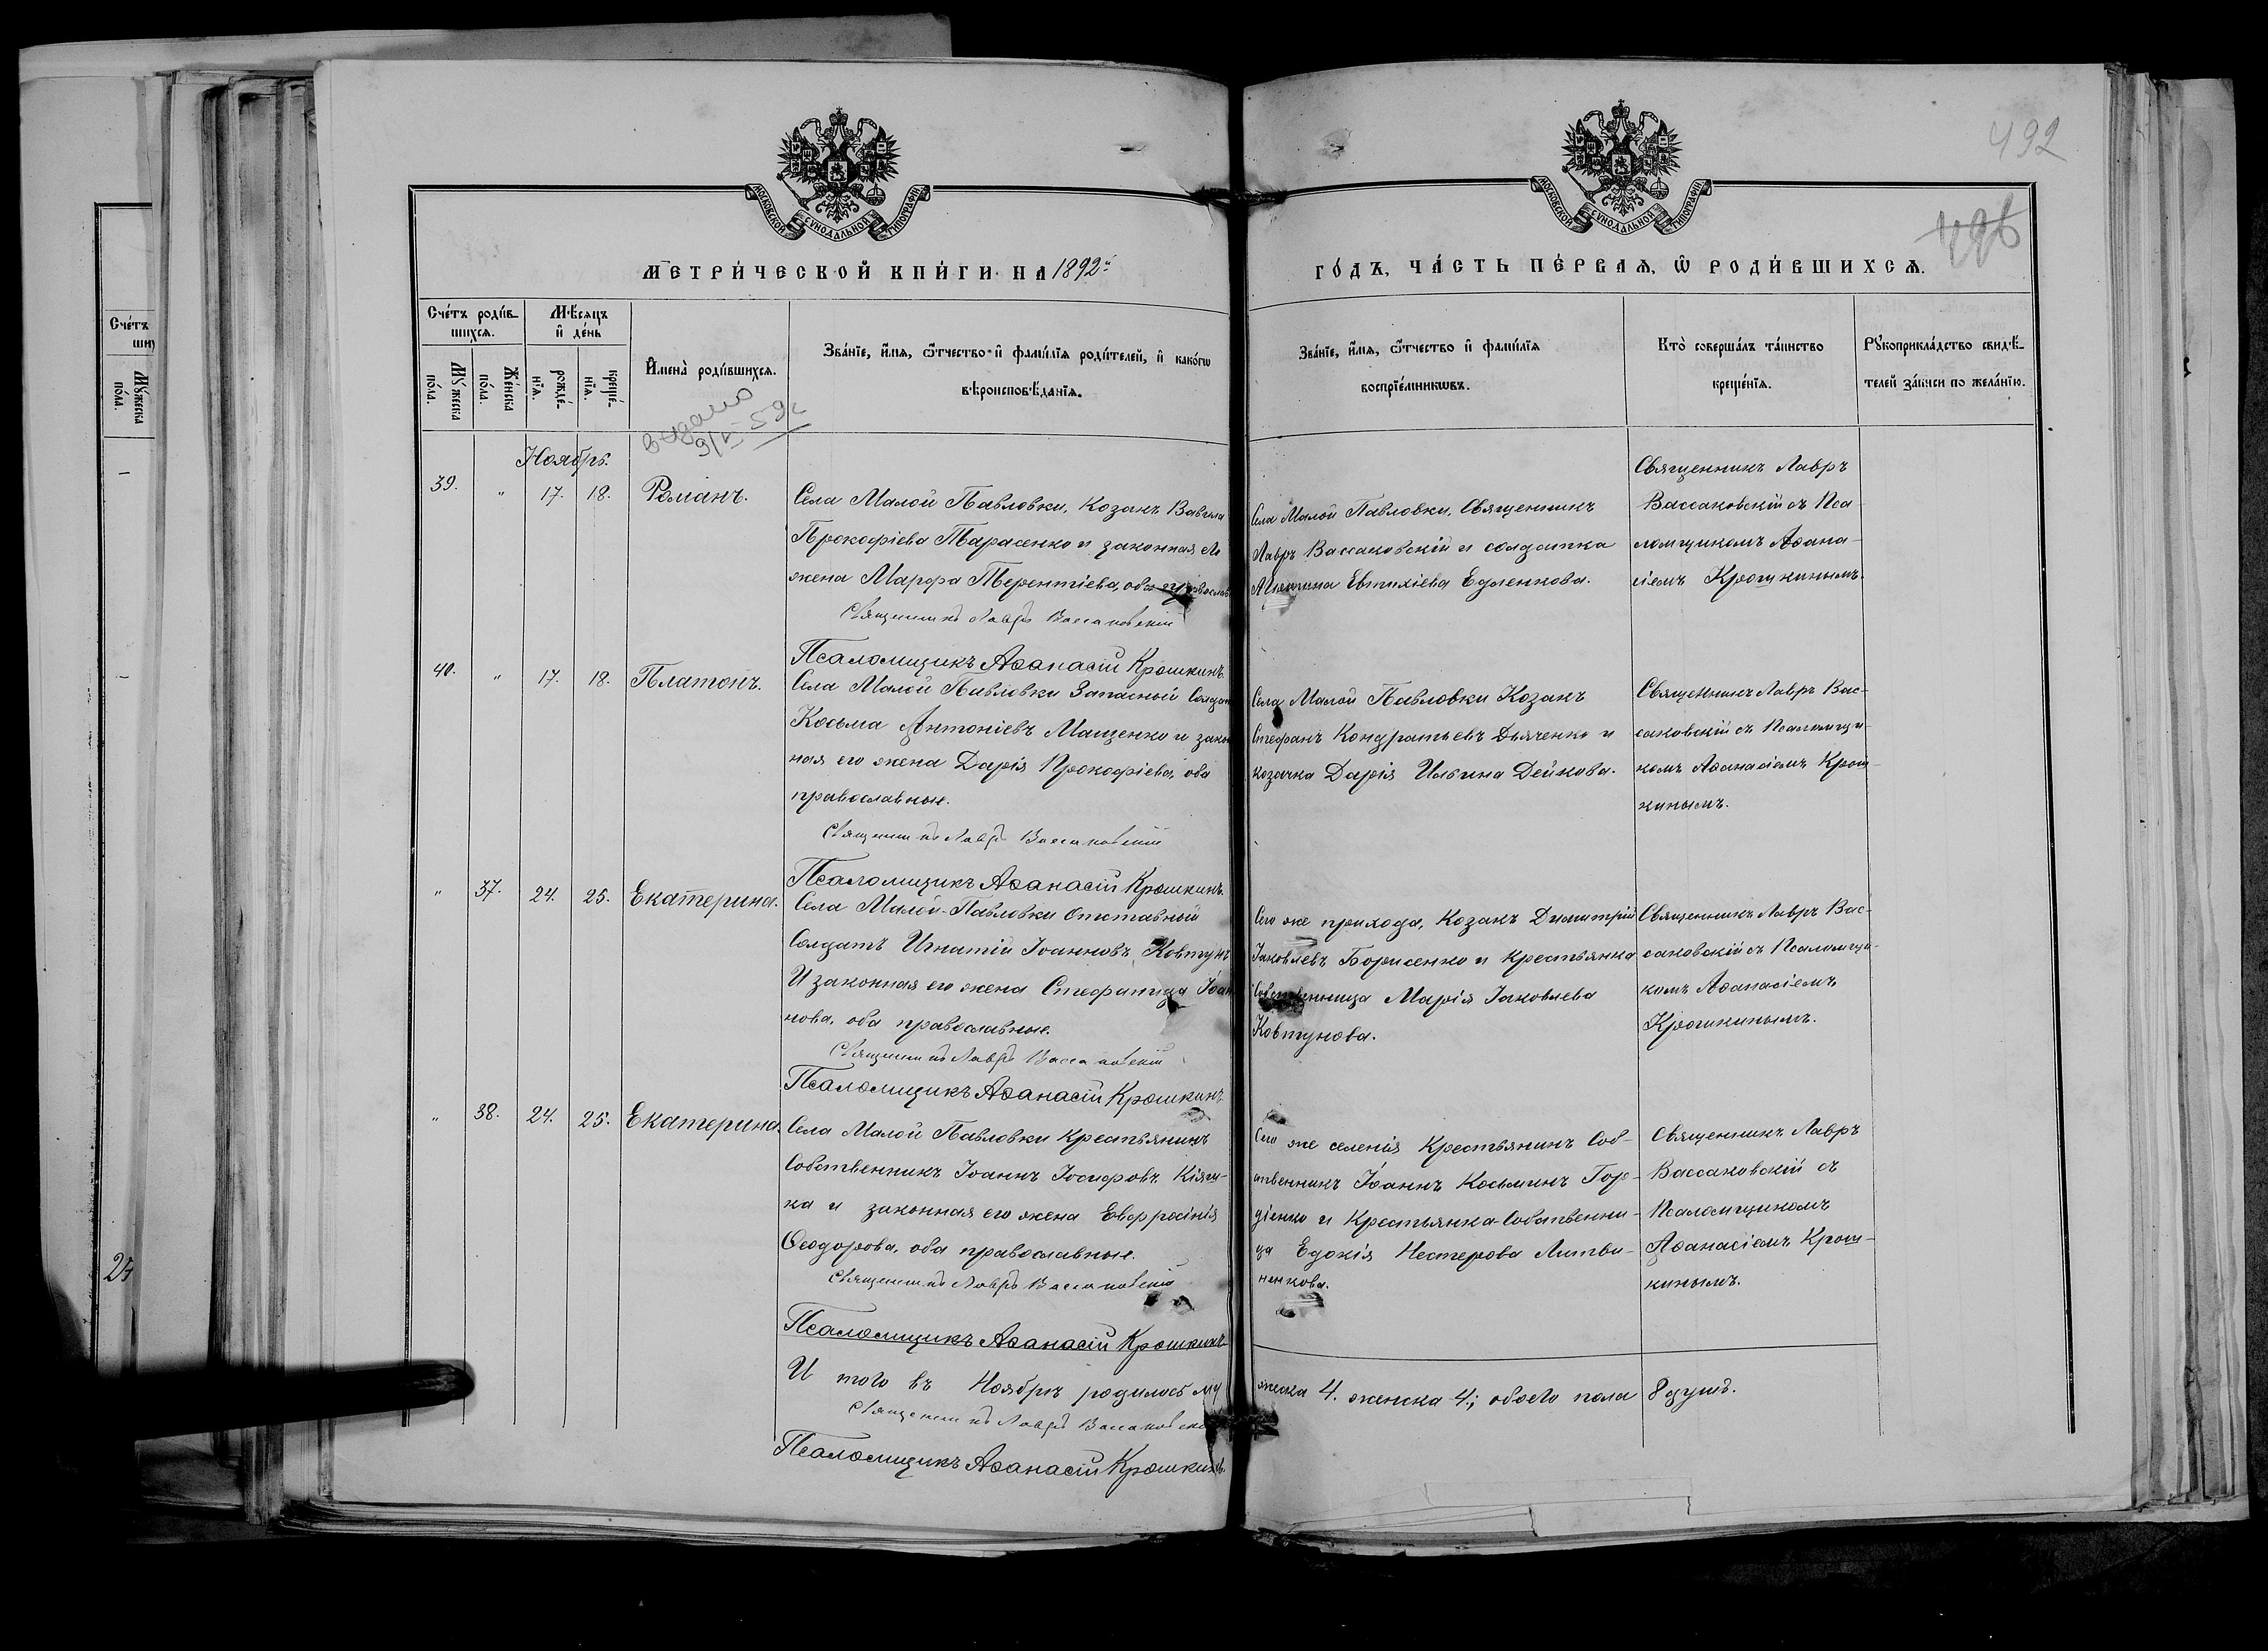 492
496
МОСКОВСКОЙ СѴНОДАЛЬНОЙ ТИПОГРАФІИ
МОСКОВСКОЙ СѴНОДАЛЬНОЙ ТИПОГРАФІИ
МЕТРИ́ЧЕСКОЙ КНИ́ГИ НА 1892й
ГО́ДЪ, ЧА́СТЬ ПЕ́РВАЯ, Ѡ РОДИ́ВШИХСѦ.
Сче́тъ роди́в-
шихсѧ.
Мꙋ́жеска по́ла.
Же́нска по́ла.
Мѣ́сяцъ
и҆ де́нь
рожде́-
нїѧ.
креще́-
нїѧ.
И҆мена̀ роди́вшихсѧ.
Зва́нїе, и҆́мѧ, ѻ҆́тчество и҆ фами́лїѧ роди́телей, и҆ како́гѡ
вѣроисповѣ́данїѧ.
Зва́нїе, и҆́мѧ, ѻ҆́тчество и҆ фами́лїѧ
воспрїе́мникѡвъ.
Кто̀ соверша́лъ та́инство
креще́нїѧ.
Рꙋкоприкла́дство свидѣ́-
телей за́писи по жела́нїю.
выдано
Ноябрь.
39. " 17. 18. Романъ.
Села Малой Павловки, Козакъ Вавила
Прокофіевъ Тарасенко и законная его
жена Марфа Терентіева, оба православ
Священникъ Лавръ Вассаковскій
Псаломщикъ Аѳанасій Крошкинъ.
Села Малой Павловки, Священникъ
Лавръ Вассаковскій и солдатка
Евтихіева Едленкова.
Священникъ Лавръ
Вассаковскій съ Пса-
ломщикомъ Аѳана-
сіемъ Крошкинымъ.
40. " 17. 18. Платонъ.
Села Малой Павловки Запасный Солдат
Косьма Антоніевъ Мащенко и закон
ная его жена Дарія Прокофіева, оба
православные.
Священникъ Лавръ Вассаковскій
Псаломщикъ Аѳанасій Крошкинъ.
Села Малой Павловки Козакъ
Стефанъ Кондратьевъ Дьяченко и
козачка Дарія Ильина Дейкова.
Священникъ Лавръ Вас-
саковскій съ Псаломщи-
комъ Аѳанасіемъ Крош-
кинымъ.
" 37. 24. 25. Екатерина.
Села Малой-Павловки Отставный
Солдатъ Игнатій Іоанновъ Ковтунъ
И законная его жена Стефанида Іоан
нова, оба православные.
Священникъ Лавръ Вассаковскій
Псаломщикъ Аѳанасій Крошкинъ
Сего же прихода, Козакъ Димитрій
Іаковлевъ Борисенко и крестьянка
Собственница Марія Іаковлева
Ковтунова.
Священникъ Лавръ Вас-
саковскій съ Псаломщи-
комъ Аѳанасіемъ
Крошкинымъ.
" 38. 24. 25. Екатерина.
Села Малой Павловки Крестьянинъ
Собственникъ Іоаннъ Іосифовъ Кіяш-
ка и законная его жена Евфросинія
Ѳеодорова, оба православные.
Священникъ Лавръ Вассаковскій
Псаломщикъ Аѳанасій Крошкинъ
Сего же селенія Крестьянинъ Соб-
ственникъ Іоаннъ Косьминъ Гор-
діенко и Крестьянка-Собственни-
ца Едокія Нестерова Литви-
ненкова.
Священникъ Лавръ
Вассаковскій съ
Псаломщикомъ
Аѳанасіемъ Крош-
кинымъ.
И того въ Ноябрѣ родилось му
жеска 4. женска 4; обоего пола 8 душъ.
Священникъ Лавръ Вассаковскій
Псаломщикъ Аѳанасій Крошкинъ.
Сче́тъ
ши
Мꙋ́жеска по́ла.